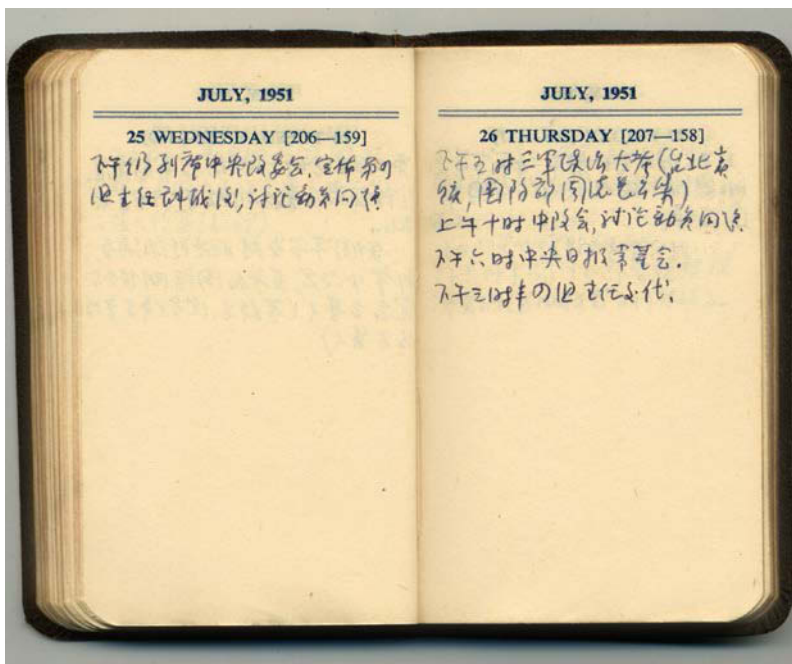 JULY, 1951
25 WEDNESDAY [206—159]
下午仍列席中央改委会,宣佈第四
组主任,讨论动员问题
JULY, 1951
26 THURSDAY [207—158]
下午五时三军球场大会(台北宾
馆,国防部
上午十时中改会,讨论动员问题
下午六时中央日报常董会.
下午三时半四组主任交代.